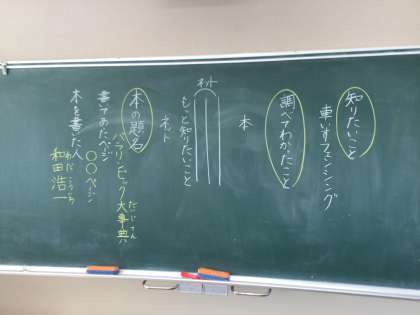 知りたいこと
車いすフェンシング
調べてわかったこと
本
ネット
もっと知りたいこと
ネット
本の題名
パラリンピック大事典
だいじてん
書いてあったページ
〇〇ページ
本を書いた人
和田浩一
わだこういち